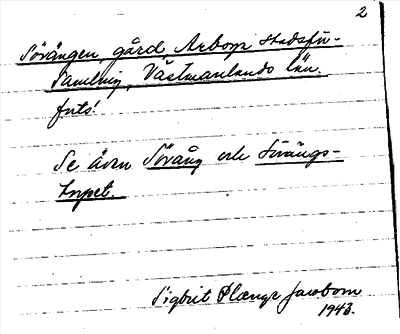 2
Sörängen, gård, Arboga stadsför-
samling, Västmanlands län.
forts!
Se även Söräng och Sörängs-
torpet
Sigbrit Plænge Jacobson
1943.